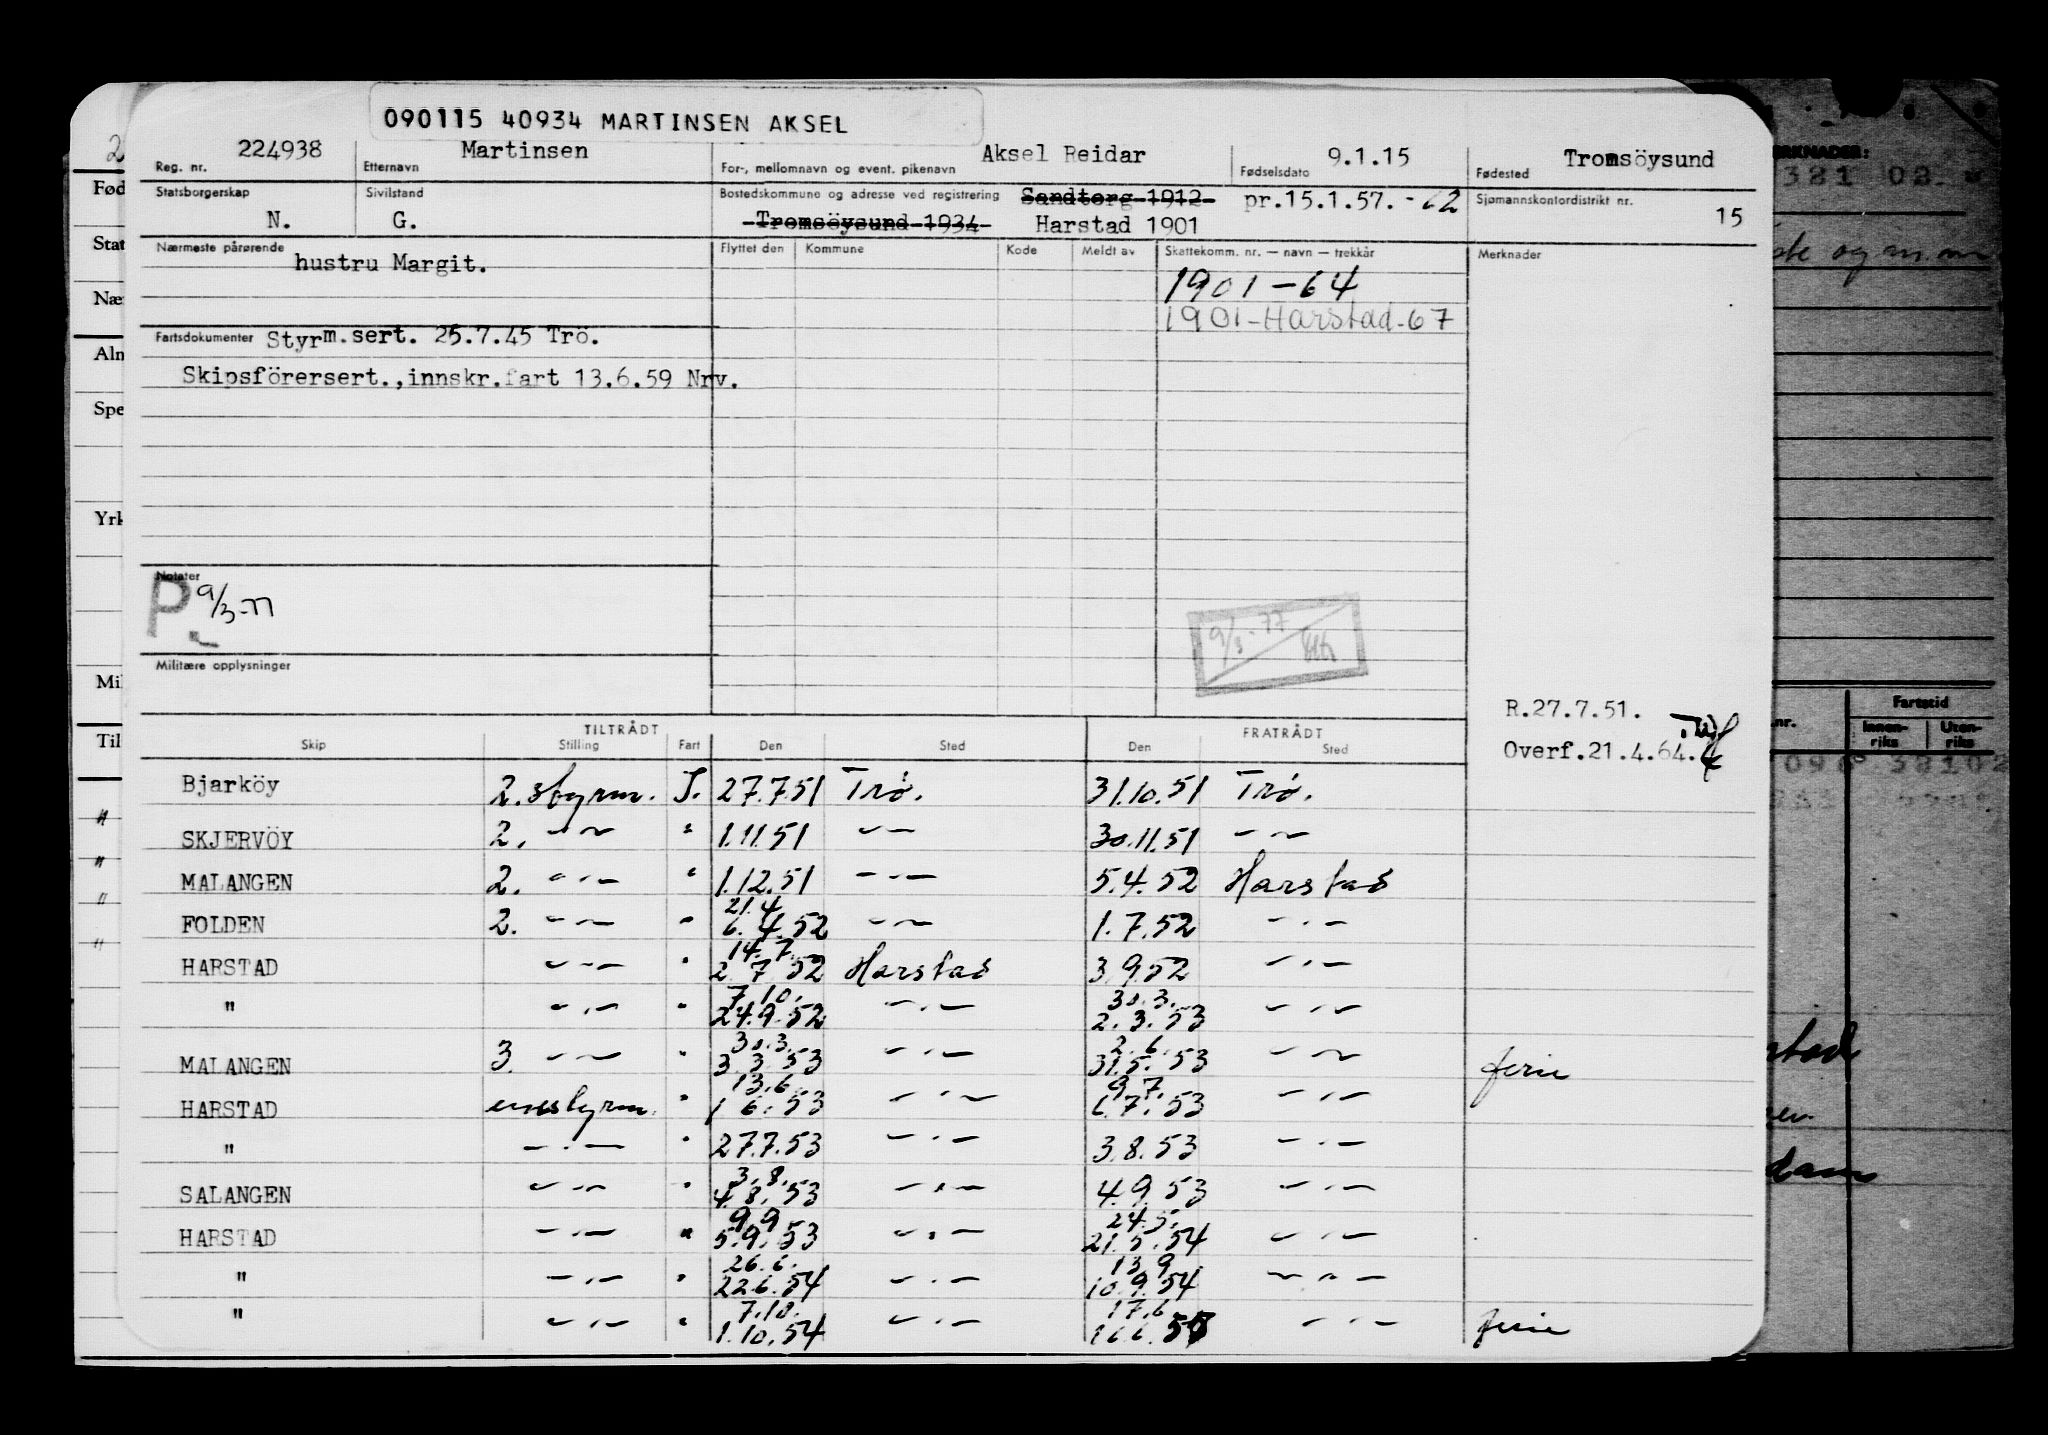 090115 40934 MARTINSEN AKSEL
Reg. nr. 224938 Etternavn Martinsen For-, mellomnavn og event. pikenavn Aksel Reidar Fødselsdato 9.1.15 Fødested Tromsöysund
Statsborgerskap Sivilstand Bostedskommune og adresse ved registrering Sandtorg 1912 pr.15.1.57.-62 Sjømannskontordistrikt nr.
N. G. Tromsöysund 1934 Harstad 1901 15
Nærmeste pårørende Flyttet den Kommune Kode Meldt av Skattekomm. nr. — navn — trekkår Merknader
hustru Margit.
1901-64
1901-Harstad-67
Fartsdokumenter Styrm.sert. 25.7.45 Trö.
Skipsförersert.,innskr.fart 13.6.59 Nrv.
Notater
P 9/3-77
9/3-77
Militære opplysninger
R.27.7.51.
Overf.21.4.64.
TILTRÅDT FRATRÅDT
Skip Stilling Fart Den Sted Den Sted
Bjarköy 2. styrm. I. 27.7.51 Trö. 31.10.51 Trö.
" SKJERVÖY 2. -"- " 1.11.51 -"- 30.11.51 -"-
" MALANGEN 2. -"- " 1.12.51 -"- 5.4.52 Harstad
21.4
" FOLDEN 2. -"- " 6.4.52 -"- 1.7.52 -"-
14.7.
" HARSTAD -"- " 2.7.52 Harstad 3.9.52 -"-
7.10. 30.3.
" -"- " 24.9.52 -"- 2.3.53 -"-
30.3. 2.6.
MALANGEN 3 -"- " 3.3.53 -"- 31.5.53 -"- ferie
13.6. 9.7.
HARSTAD enestyrm. " 1.6.53 -"- 6.7.53 -"-
" -"- " 27.7.53 -"- 3.8.53 -"-
3.8.
SALANGEN -"- " 4.8.53 -"- 4.9.53 -"-
9.9 24.5.
HARSTAD -"- " 5.9.53 -"- 21.5.54 -"-
26.6. 13.9.
" -"- " 22.6.54 -"- 10.9.54 -"-
7.10. 17.6
" -"- " 1.10.54 -"- 16.6. -"- ferie
Fød
Stat
Nær
Aln
Spe
Yrk
Mil
Til
381 02
Fartstid
nr. Innen-riks Uten-riks